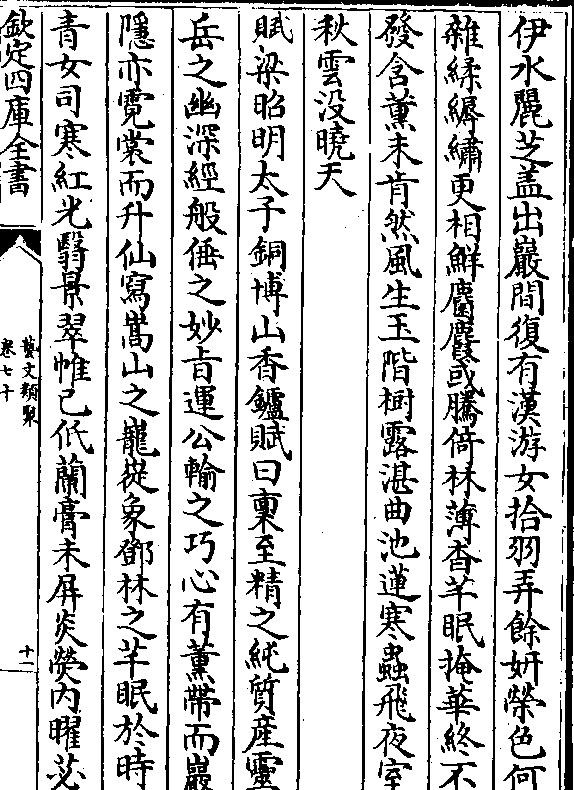 伊水麗芝盖出巖間復有漢游女拾羽弄餘妍榮色何
雜糅縟繡更相鮮麏麚或騰倚林薄杳芊眠掩華終不
發含薰未肯然風生玉階樹露湛曲池蓮寒蟲飛夜室
秋雲没曉天
賦梁昭明太子銅博山香鑪賦曰禀至精之純質産靈
岳之幽深經般倕之妙㫖運公輸之巧心有薰帶而巖
隱亦霓裳而升仙寫嵩山之巃嵸象鄧林之芊眠於時
青女司寒紅光翳景翠帷已低蘭膏未屏炎熒内曜苾
欽定四庫全書
藝文類聚
卷七十
十一